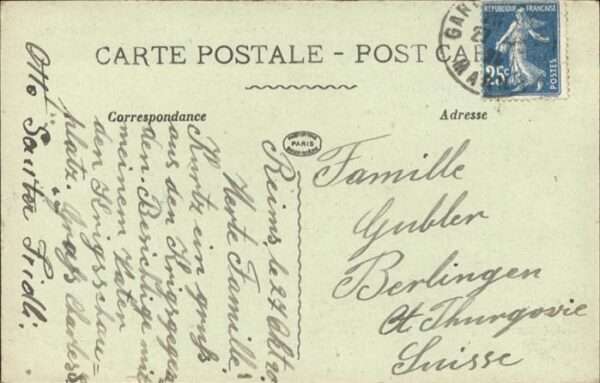 CARTE POSTALE - POST CAR
RÉPUBLIQUE FRANÇAISE
25c
POSTES
GAR
Correspondance
Adresse
PARIS
Reims, le 27 Okt. 20
Werte Familie!
Kurtz ein gruß
aus den Krigsgegen
den. Besichtige mit
meinem Vater
den Krigsschau=
platz. Gruß
Otto Sauter Fridli.
Famille
Gubler
Berlingen
Ct Thurgovie
Suisse